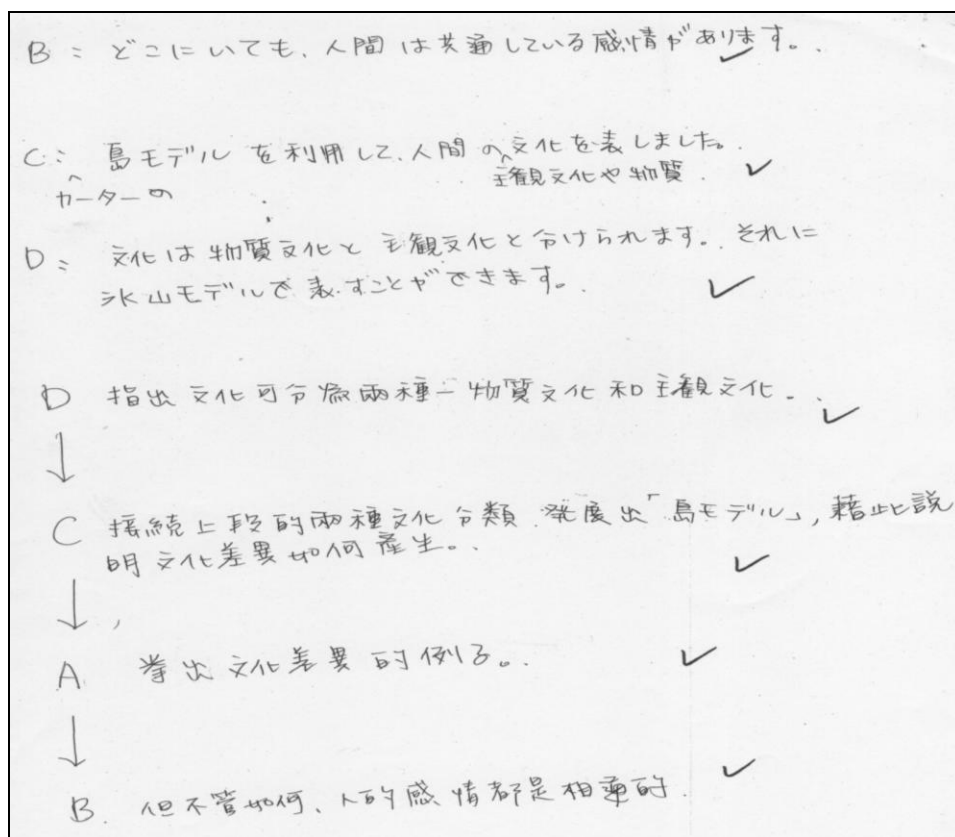 B: どこにいても、人間は共通している感情があります。
C: 島モデルを利用して、人間の文化を表しました。
カーターの 主観文化や物質
D: 文化は物質文化と主観文化と分けられます。それに
氷山モデルで表すことができます。
D 指出文化可分為兩種－物質文化和主觀文化。
↓
C 接続上段的兩種文化分類,発展出「島モデル」,藉此說
明文化差異如何產生。
↓
A 挙出文化差異的例子。
↓
B. 但不管如何、人的感情都是相通的.